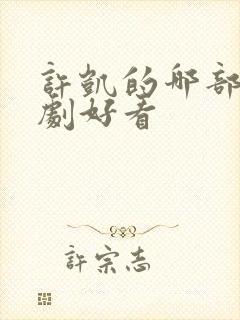 許凱的哪部
劇好看
許宗志